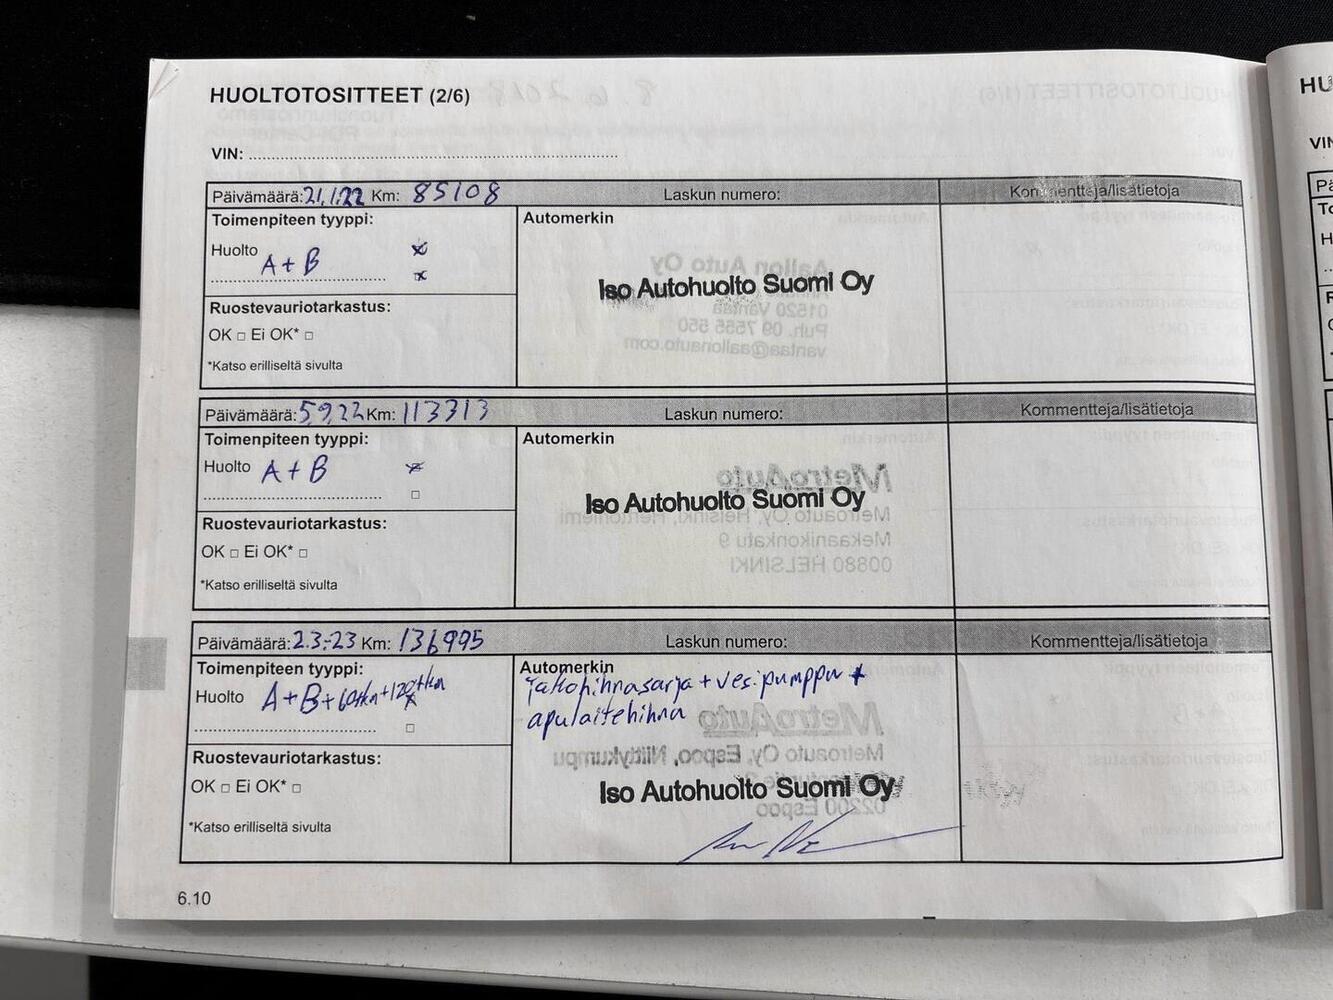 HUOLTOTOSITTEET (2/6)
VIN:
Päivämäärä: 21.1.22 Km: 85108 Laskun numero: Kommentteja/lisätietoja
Toimenpiteen tyyppi:
Automerkin
Huolto A+B
Iso Autohuolto Suomi Oy
Ruostevauriotarkastus:
OK □ Ei OK* □
*Katso erilliseltä sivulta
Päivämäärä: 5.9.22 Km: 113313 Laskun numero: Kommentteja/lisätietoja
Toimenpiteen tyyppi:
Automerkin
Huolto A+B
Iso Autohuolto Suomi Oy
Ruostevauriotarkastus:
OK □ Ei OK* □
*Katso erilliseltä sivulta
Päivämäärä: 2.3.-23 Km: 136995 Laskun numero: Kommentteja/lisätietoja
Toimenpiteen tyyppi:
Automerkin
Huolto A+B+60tkm+120tkm
Jakohihnasarja + vesipumppu +
apulaitehihna
Ruostevauriotarkastus:
OK □ Ei OK* □
Iso Autohuolto Suomi Oy
*Katso erilliseltä sivulta
6.10
HU
VIN